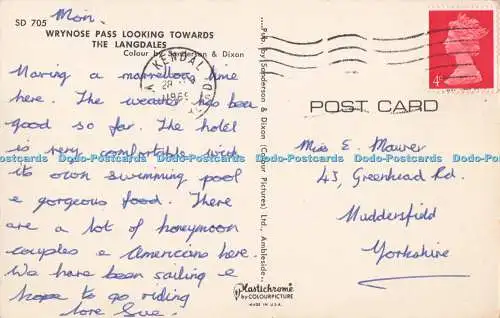 SD 705
WRYNOSE PASS LOOKING TOWARDS
THE LANGDALES
Colour by Sanderson & Dixon
Mon.
Having a marvellous time
here. The weather has been
good so far. The hotel
is very comfortable with
its own swimming pool
& gorgeous food. There
are a lot of honeymoon
couples & Americans here.
We have been sailing &
hope to go riding
love Sue.
Pub. by Sanderson & Dixon (Colour Pictures) Ltd., Ambleside.
Plastichrome
by COLOURPICTURE
MADE IN U.S.A.
KENDAL
1969
4d
POST CARD
Miss E. Maurer
43, Greenhead Rd.
Huddersfield
Yorkshire
Dodo-Postcards Dodo-Postcards Dodo-Postcards Dodo-Postcards